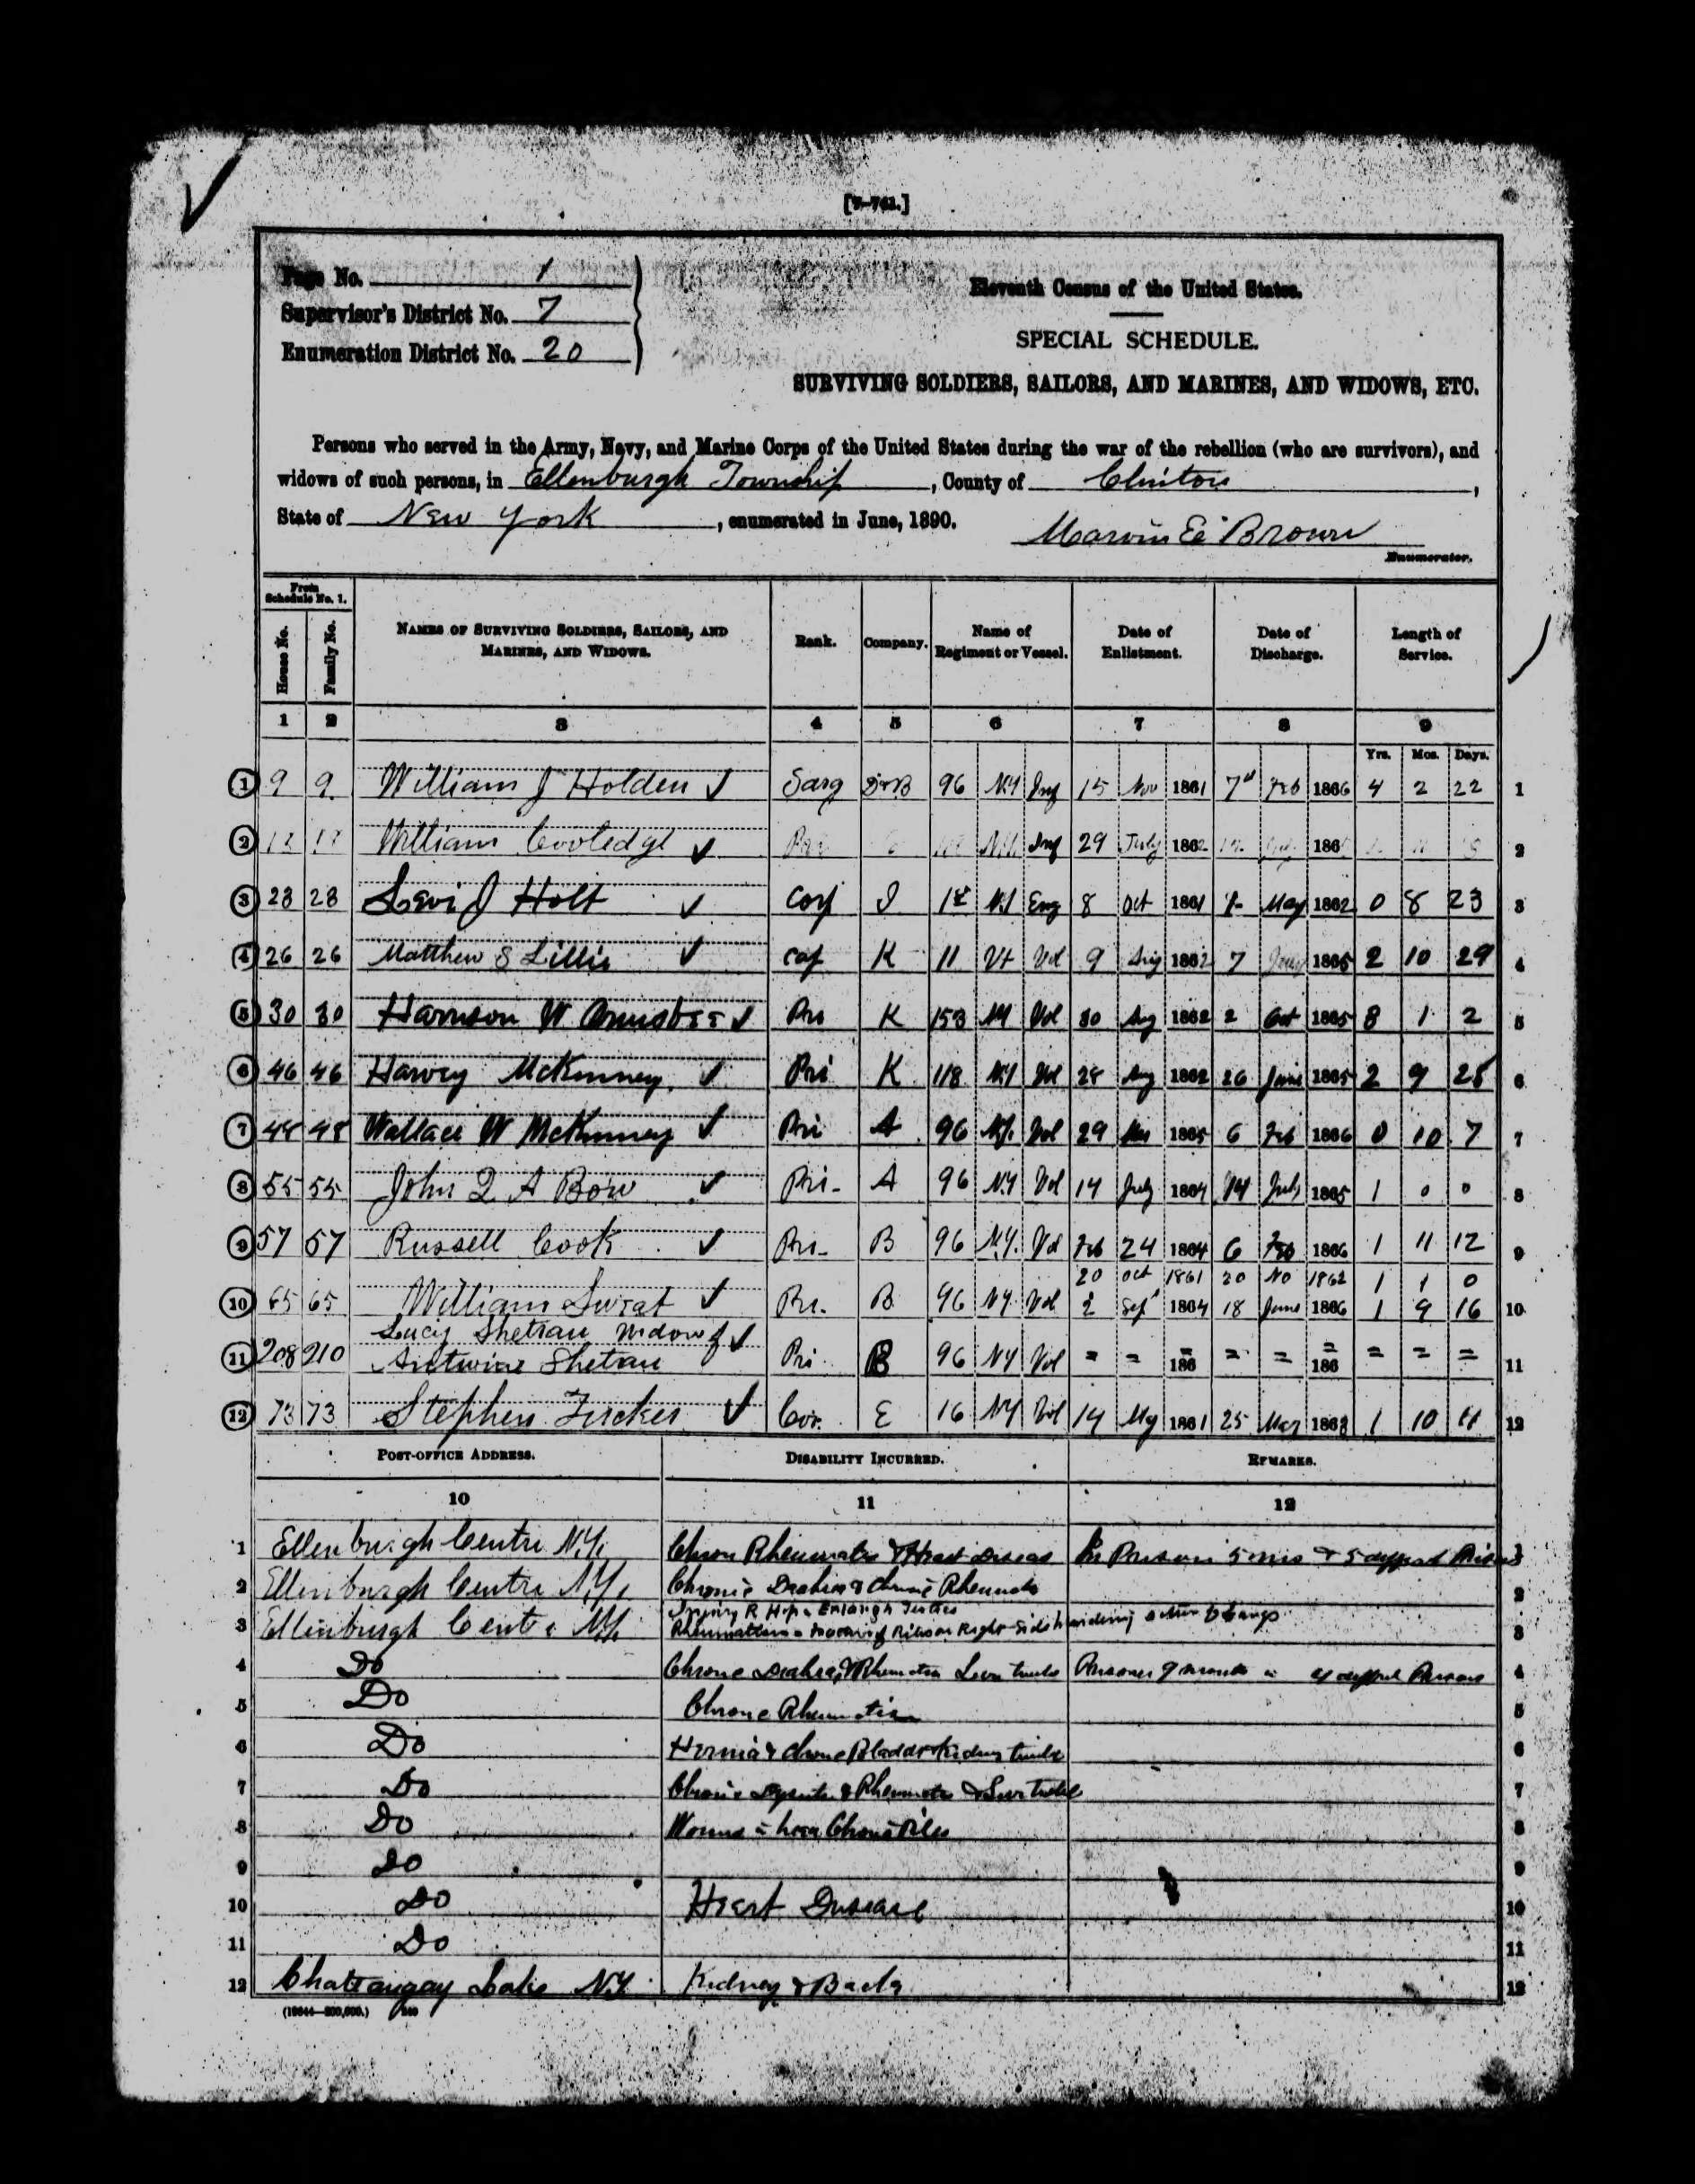 [7-761.]
Page No. 1
Supervisor's District No. 7
Enumeration District No. 20
Eleventh Census of the United States.
SPECIAL SCHEDULE.
SURVIVING SOLDIERS, SAILORS, AND MARINES, AND WIDOWS, ETC.
Persons who served in the Army, Navy, and Marine Corps of the United States during the war of the rebellion (who are survivors), and
widows of such persons, in Ellenburgh Township, County of Clinton,
State of New York, enumerated in June, 1890.
Marvin E Brown
Enumerator.
From Schedule No. 1. House No. Family No. NAMES OF SURVIVING SOLDIERS, SAILORS, AND MARINES, AND WIDOWS. Rank. Company. Name of Regiment or Vessel. Date of Enlistment. Date of Discharge. Length of Service.
1 2 3 4 5 6 7 8 9
Yrs. Mos. Days.
1 9 9 William J Holden Sarg D&B 96 N.Y Inf 15 Nov 1861 7 Feb 1866 4 2 22 1
2 William Cooledge Inf 29 July 1862 186 2
3 28 28 Levi J Holt Corp I 1st N.Y Eng 8 Oct 1861 May 1862 0 8 23 3
4 26 26 Matthew S Lillis Cap K 11 Vt Vol 9 Aug 1862 7 1865 2 10 29 4
5 30 30 Harrison W Ormsbee Pri K 153 NY Vol 30 Aug 1862 2 Oct 1865 8 1 2 5
6 46 46 Harvey McKinney Pri K 118 N.Y Vol 28 Aug 1862 26 June 1865 2 9 28 6
7 48 48 Wallace W McKinney Pri A 96 N.Y. Vol 29 Mar 1865 6 Feb 1866 0 10 7 7
8 55 55 John Q A Bow Pri- A 96 N.Y Vol 14 July 1864 14 July 1865 1 0 0 8
9 57 57 Russell Cook Pri- B 96 N.Y. Vol Feb 24 1864 6 Feb 1866 1 11 12 9
20 Oct 1861 20 No 1862 1 1 0
10 65 65 William Sweat Pri. B 96 NY Vol 2 Sep 1864 18 June 1866 1 9 16 10
Lucy Shetrau Widow of
11 208 210 Antwine Shetrau Pri B 96 NY Vol = = 186 = = 186 = = = 11
12 73 73 Stephen Tucker Cor. E 16 NY Vol 14 My 1861 25 Mar 1863 1 10 11 12
POST-OFFICE ADDRESS. DISABILITY INCURRED. REMARKS.
10 11 12
1 Ellenburgh Centre N.Y. Chron Rheumatis & Heart Diseas In Prison 5 mos & 5 1
2 Ellenburgh Centre N.Y. Chronic Diahrea & Chronic Rheumatis 2
Injury R Hip &
3 Ellenburgh Centre N.Y. Rheumatism Right Side 3
4 Do Chronic Diahrea & Rheumatis Liver truble Prisoner 9 months in 4
5 Do Chronic Rheumatism 5
6 Do Hernia & Chronic Bladder Kidney truble 6
7 Do Chronic & Rheumatis & Liver truble 7
8 Do Chronic Piles 8
9 Do 9
10 Do Heart Disease 10
11 Do 11
12 Chateaugay Lake N.Y. Kidney & Back 12